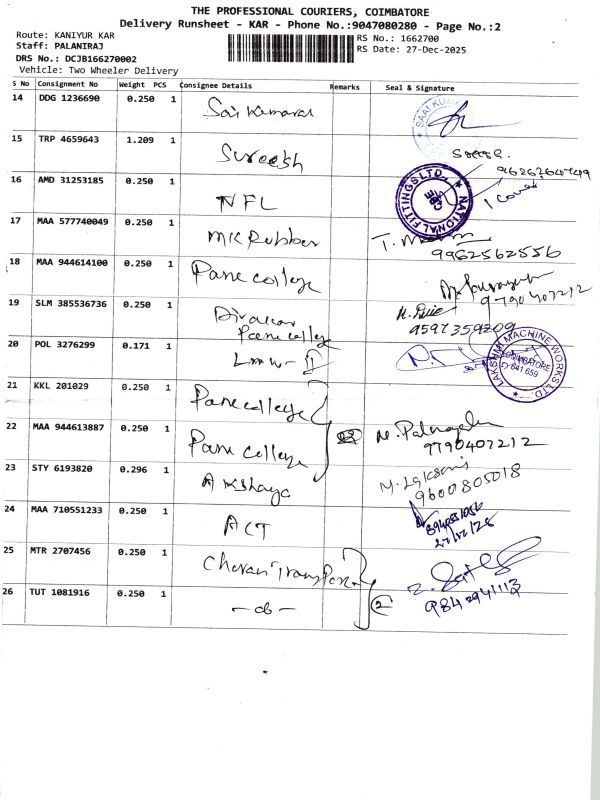 THE PROFESSIONAL COURIERS, COIMBATORE
Delivery Runsheet - KAR - Phone No.:9047080280 - Page No.:2
Route: KANIYUR KAR
Staff: PALANIRAJ
DRS No.: DCJB166270002
Vehicle: Two Wheeler Delivery
RS No.: 1662700
RS Date: 27-Dec-2025
S No Consignment No Weight PCS Consignee Details Remarks Seal & Signature
14 DDG 1236690 0.250 1 Sai Kumaran SAAI KUM
15 TRP 4659643 1.209 1 Sureesh
16 AMD 31253185 0.250 1 NFL NATIONAL FITTINGS LTD., CBE 1 Cover
17 MAA 577740049 0.250 1 MK Rubber 9962562556
18 MAA 944614100 0.250 1 Park college 9790407212
19 SLM 385536736 0.250 1 Park college 9597359209
20 POL 3276299 0.171 1 LMW-II LAKSHMI MACHINE WORKS LTD COIMBATORE 641 659
21 KKL 201029 0.250 1 Park college
22 MAA 944613887 0.250 1 Park college 9790407212
23 STY 6193820 0.296 1 Akshaya 9600805018
24 MAA 710551233 0.250 1 ACT
25 MTR 2707456 0.250 1 Cheran Transport
26 TUT 1081916 0.250 1 - do - 2 9842941113